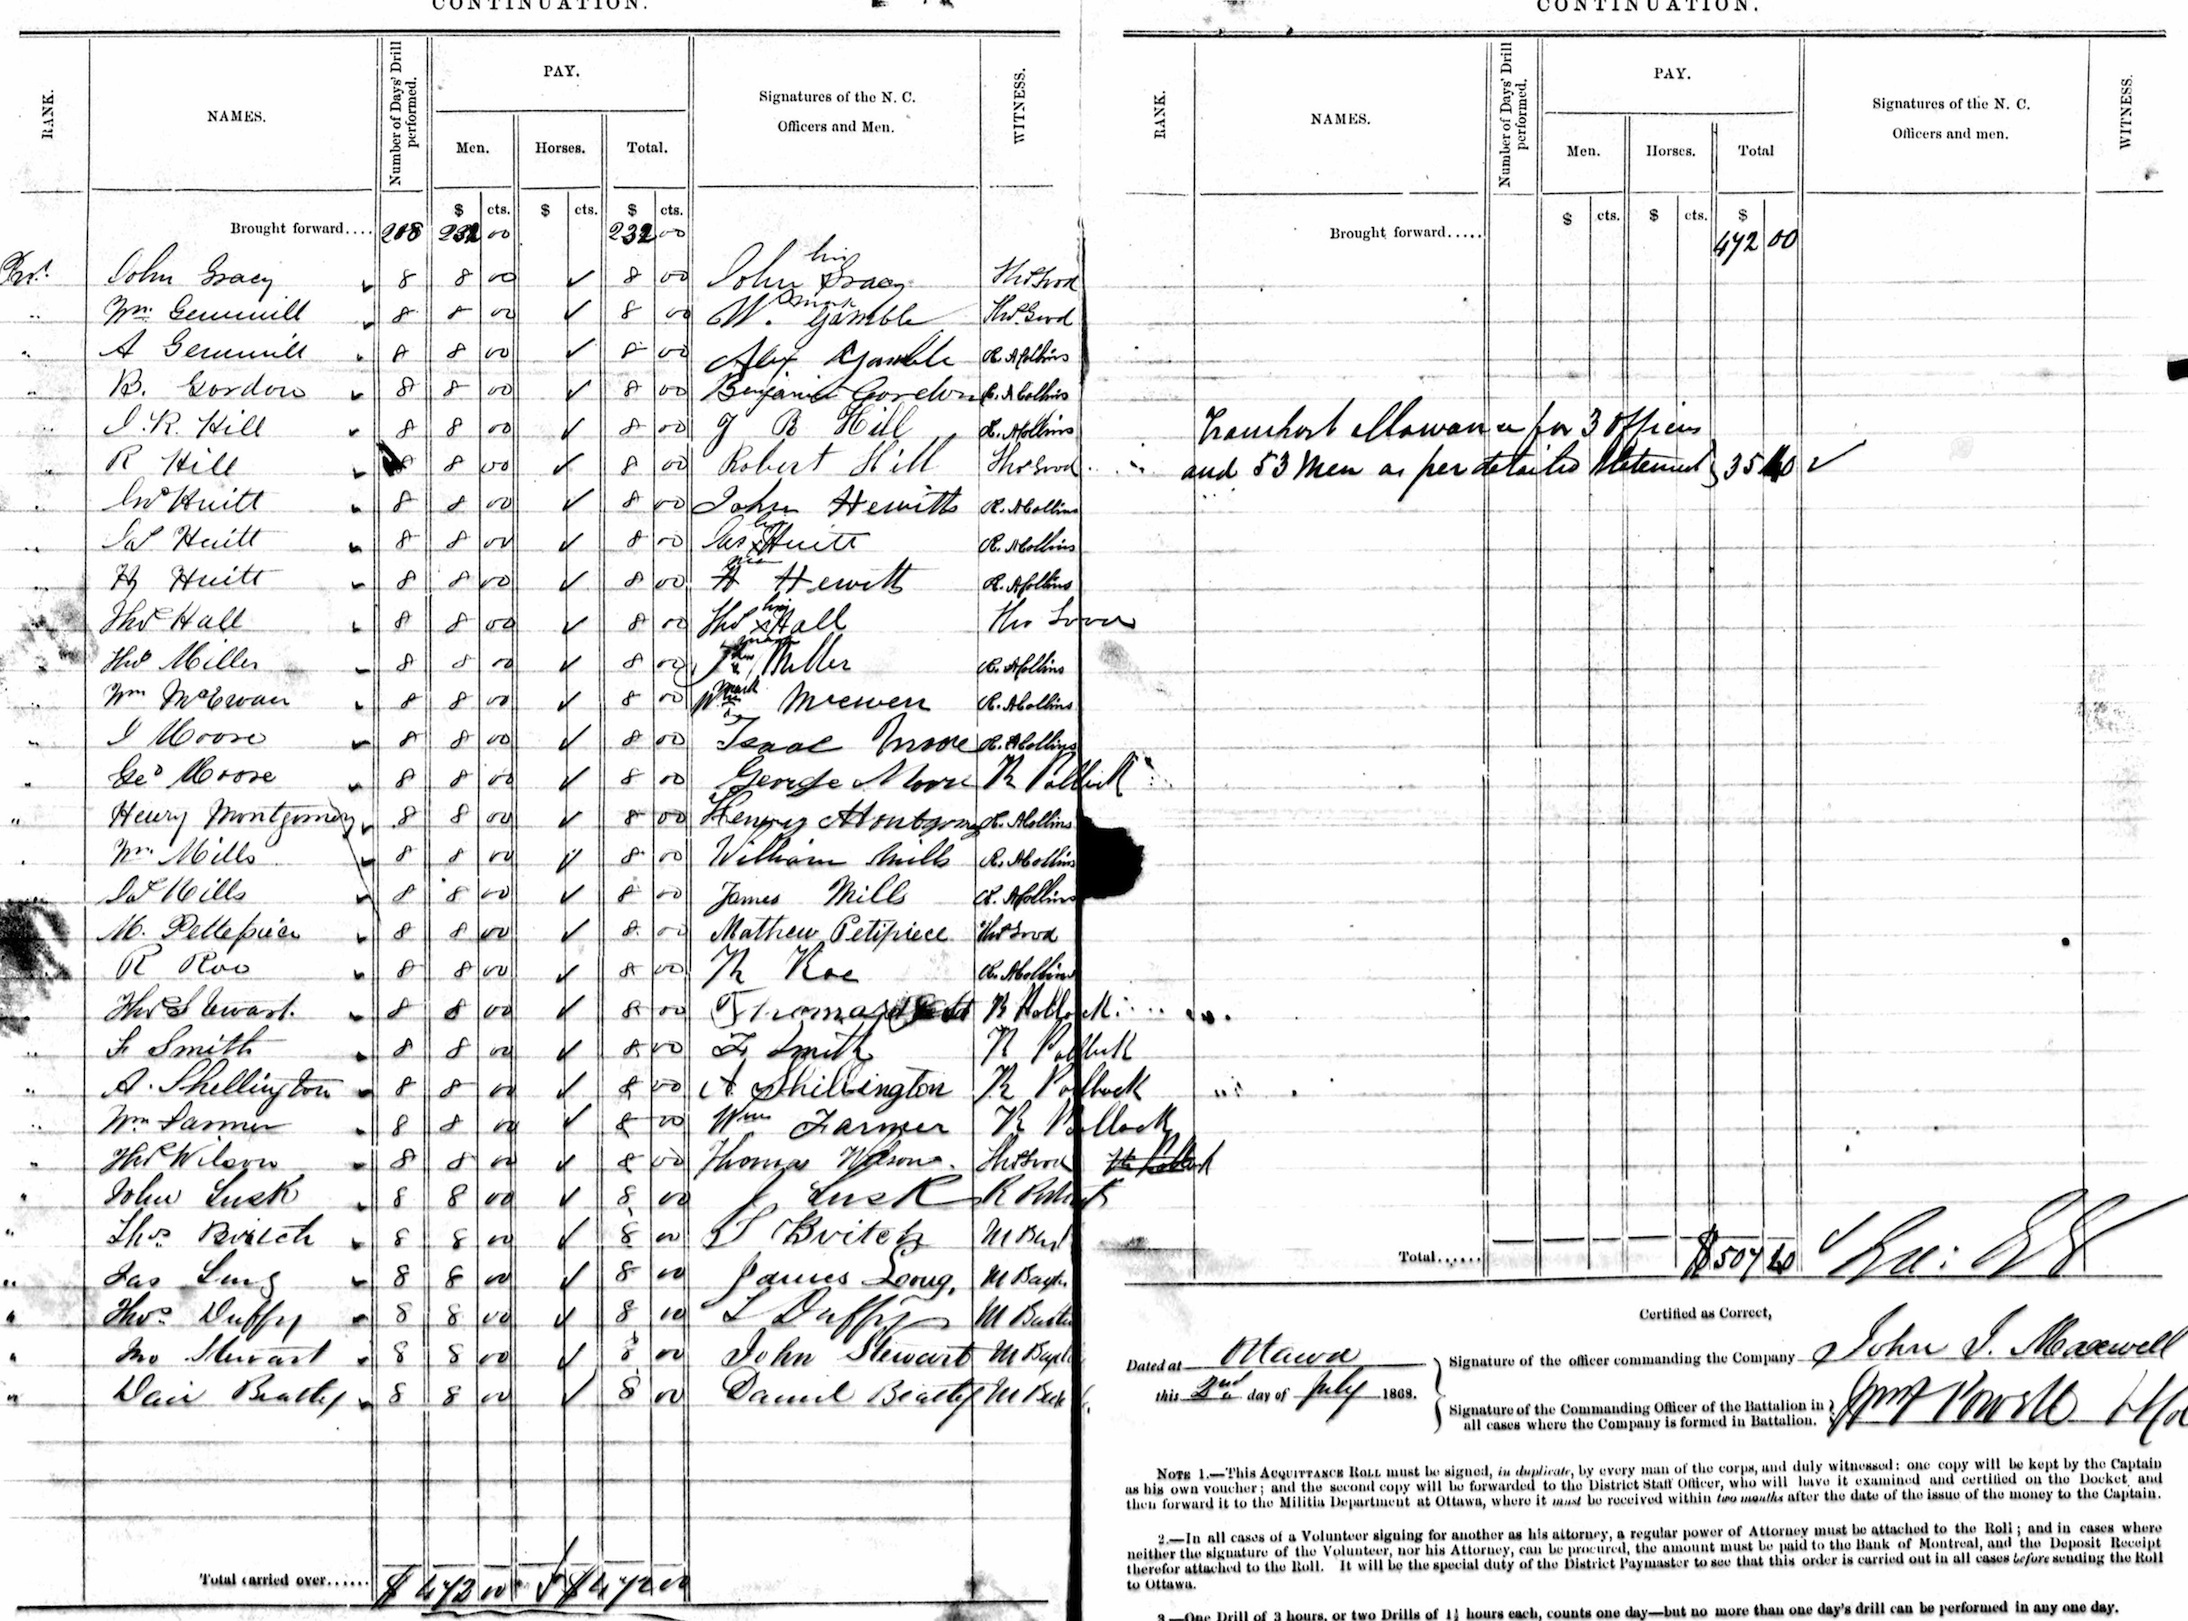 CONTINUATION.
RANK. NAMES. Number of Days' Drill performed. PAY. Signatures of the N. C. Officers and Men. WITNESS.
Men. Horses. Total.
$ cts. $ cts. $ cts.
Brought forward.... 208 232 00 232 00
John Gracy 8 8 00 ✓ 8 00 John his Gracy Thos Good
Wm. Gemmill 8 8 00 ✓ 8 00 W. mark Gamble Thos. Good
" A Gemmill 8 8 00 ✓ 8 00 Alex Gamble R. A Collins
" B. Gordon 8 8 00 ✓ 8 00 Benjamin Gordon R. A Collins
" J. R. Hill 8 8 00 ✓ 8 00 J R Hill R. A Collins
" R Hill 8 8 00 ✓ 8 00 Robert Hill Thos Good
" Jno Huitt 8 8 00 ✓ 8 00 John Hewitts R. A Collins
" Jas Huitt 8 8 00 ✓ 8 00 Jas his x Huitt R. A Collins
" H Huitt 8 8 00 ✓ 8 00 H Hewitt R. A Collins
" Thos Hall 8 8 00 ✓ 8 00 Thos his x Hall Thos Good
" Thos Miller 8 8 00 ✓ 8 00 mark Miller R. A Collins
" Wm McEwan 8 8 00 ✓ 8 00 Wm mark Mcewen R. A Collins
" I Moore 8 8 00 ✓ 8 00 Isaac Moore R. A Collins
" Geo Moore 8 8 00 ✓ 8 00 George Moore R Pollock
" Henry Montgomery 8 8 00 ✓ 8 00 Henry Montgomery R. A Collins
" Wm. Mills 8 8 00 ✓ 8 00 William Mills R. A Collins
" Jas Mills 8 8 00 ✓ 8 00 James Mills R. A Collins
M. Pettepiece 8 8 00 ✓ 8 00 Mathew Petipiece Thos Good
R Roe 8 8 00 ✓ 8 00 R Roe R. A Collins
Thos Stewart 8 8 00 ✓ 8 00 Thomas R Pollock
" F Smith 8 8 00 ✓ 8 00 F. Smith R Pollock
" A. Shellington 8 8 00 ✓ 8 00 A Shillington R Pollock
" Wm Farmer 8 8 00 ✓ 8 00 Wm Farmer R Pollock
" Thos Wilson 8 8 00 ✓ 8 00 Thomas Wilson. Thos Good
" John Lusk 8 8 00 ✓ 8 00 J Lusk R Pollock
" Thos. Britch 8 8 00 ✓ 8 00 T Britch
" Jas Long 8 8 00 ✓ 8 00 James Long,
" Thos. Duffy 8 8 00 ✓ 8 00 T Duffy
" Jno Stewart 8 8 00 ✓ 8 00 John Stewart
" Dan Beatty 8 8 00 ✓ 8 00 Daniel Beatty
Total carried over...... $ 472 00 $ 472 00
CONTINUATION.
RANK. NAMES. Number of Days' Drill performed. PAY. Signatures of the N. C. Officers and men. WITNESS.
Men. Horses. Total
$ cts. $ cts. $
Brought forward..... 472 00
Transport Allowance for 3 Officers
and 53 Men as per detailed Statement } 35 40 ✓
Total...... $507 40
Certified as Correct,
Dated at Ottawa
this 2nd day of July 1868.
Signature of the officer commanding the Company John J. Maxwell
Signature of the Commanding Officer of the Battalion in
all cases where the Company is formed in Battalion. } Wm F Powell
NOTE 1.—This ACQUITTANCE ROLL must be signed, in duplicate, by every man of the corps, and duly witnessed: one copy will be kept by the Captain
as his own voucher; and the second copy will be forwarded to the District Staff Officer, who will have it examined and certified on the Docket and
then forward it to the Militia Department at Ottawa, where it must be received within two months after the date of the issue of the money to the Captain.
2.—In all cases of a Volunteer signing for another as his attorney, a regular power of Attorney must be attached to the Roll; and in cases where
neither the signature of the Volunteer, nor his Attorney, can be procured, the amount must be paid to the Bank of Montreal, and the Deposit Receipt
therefor attached to the Roll. It will be the special duty of the District Paymaster to see that this order is carried out in all cases before sending the Roll
to Ottawa.
3.—One Drill of 3 hours, or two Drills of 1½ hours each, counts one day—but no more than one day's drill can be performed in any one day.